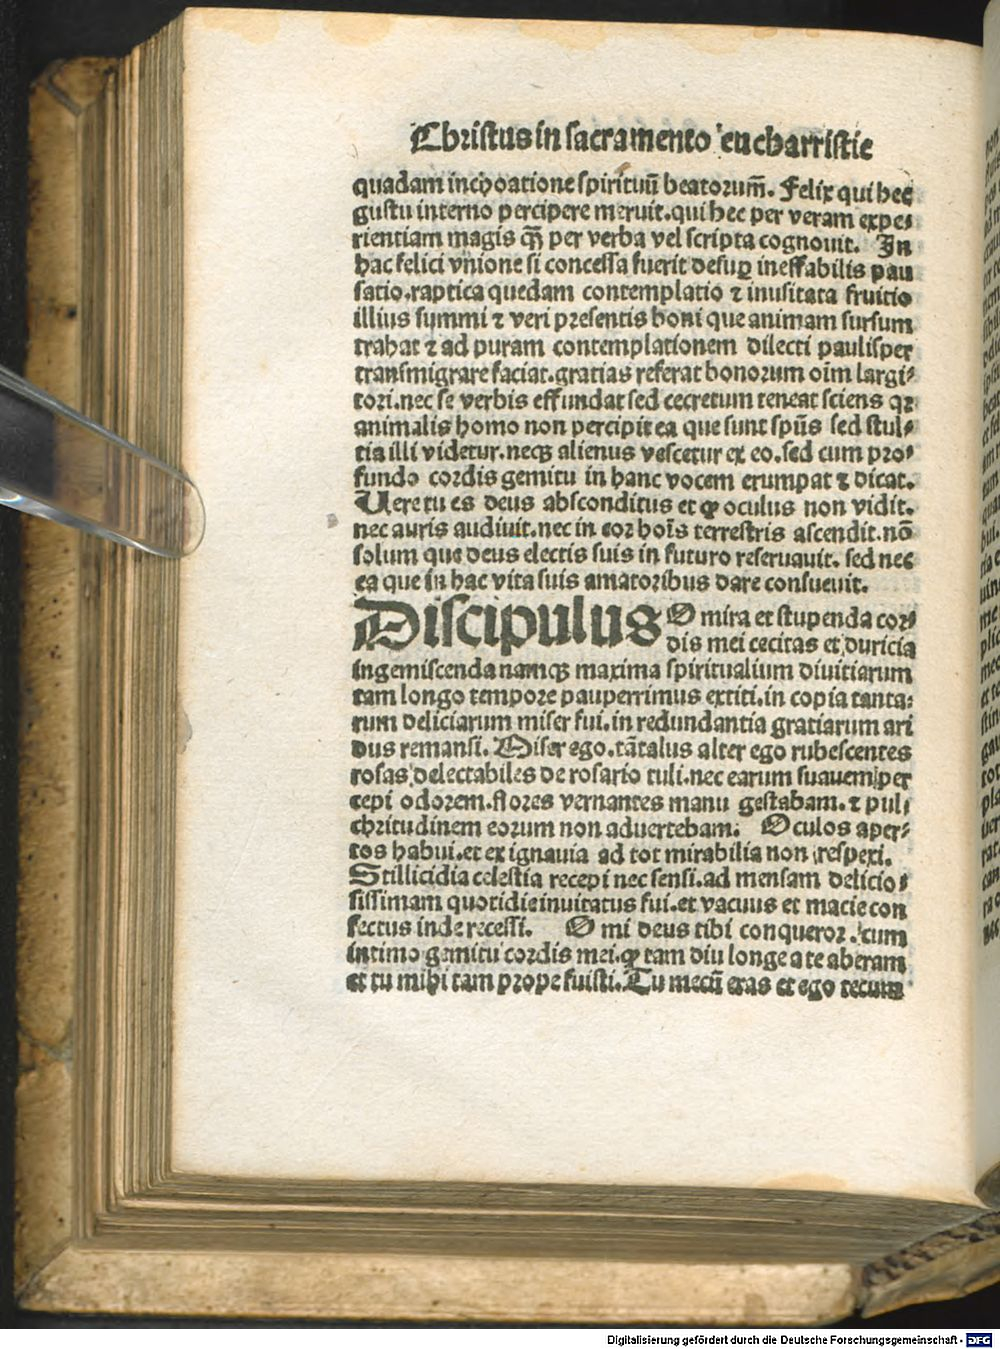 Christus in sacramento eucharristie
quadam inchoatione spirituū beatorum̄. Felix qui hec
gustu interno percipere meruit. qui hec per veram expe⸗
rientiam magis qȝ̄ per verba vel scripta cognouit. In
hac felici vnione si concessa fuerit desuꝑ ineffabilis pau
satio. raptica quedam contemplatio ⁊ inusitata fruitio
illius summi ⁊ veri presentis boni que animam sursum
trahat ⁊ ad puram contemplationem dilecti paulisper
transmigrare faciat. gratias referat bonorum oīm largi⸗
tori. nec se verbis effundat sed cecretum teneat sciens qꝛ
animalis homo non percipit ea que sunt spūs sed stul⸗
tia illi videtur. neqȝ alienus vescetur ex eo. sed cum pro⸗
fundo cordis gemitu in hanc vocem erumpat ⁊ dicat.
Uere tu es deus absconditus et ꝙ oculus non vidit.
nec auris audiuit. nec in coꝛ hoīs terrestris ascendit. nō
solum que deus electis suis in futuro reseruauit. sed nec
ea que in hac vita suis amatoribus dare consueuit.
Discipulus O mira et stupenda cor⸗
dis mei cecitas et duricia
ingemiscenda namqȝ maxima spiritualium diuitiarum
tam longo tempore pauperrimus extiti. in copia tanta⸗
rum deliciarum miser fui. in redundantia gratiarum ari
dus remansi. Miser ego. tātalus alter ego rubescentes
rosas delectabiles de rosario tuli. nec earum suauem per
cepi odorem. flores vernantes manu gestabam. ⁊ pul⸗
chritudinem eorum non aduertebam. Oculos aper⸗
tos habui. et ex ignauia ad tot mirabilia non respexi.
Stillicidia celestia recepi nec sensi. ad mensam delicio⸗
sissimam quotidie inuitatus fui. et vacuus et macie con
fectus inde recessi. O mi deus tibi conqueror. cum
intimo gemitu cordis mei. ꝙ tam diu longe a te aberam
et tu mihi tam prope fuisti. Tu mecū eras et ego tecum
Digitalisierung gefördert durch die Deutsche Forschungsgemeinschaft - DFG